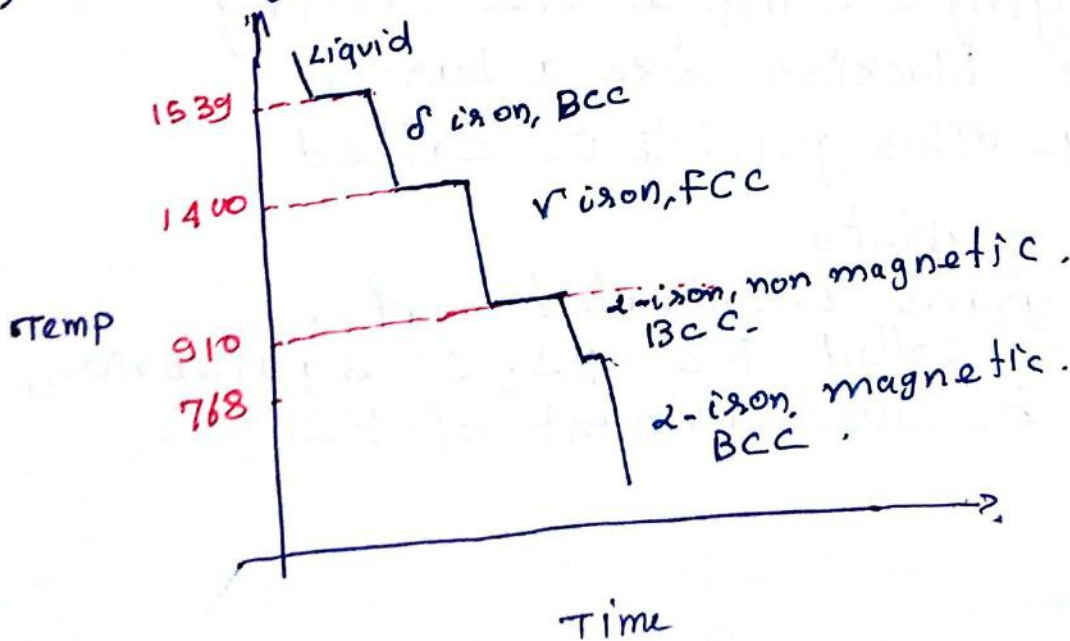 Liquid
1539
δ iron, BCC
1400
γ iron, FCC
α-iron, non magnetic.
BCC.
Temp
910
768
α-iron, magnetic.
BCC.
Time